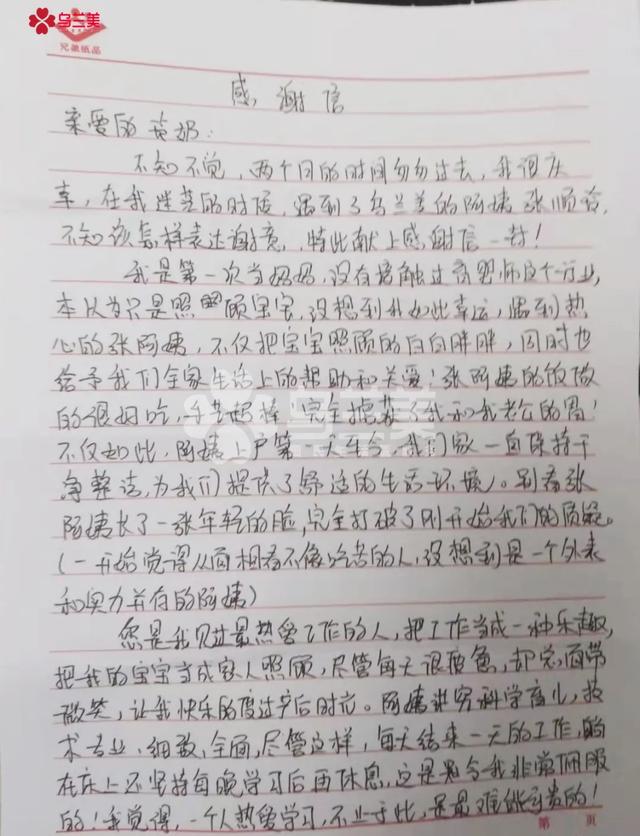 乌兰美
兄弟纸品
感谢信
亲爱的黄奶:
不知不觉,两个月的时间匆匆过去,我很庆
幸,在我迷茫的时候,遇到了乌兰美的阿姨张顺谷,
不知该怎样表达谢意,特此献上感谢信一封!
我是第一次当妈妈,没有接触过育婴师这个行业,
本以为只是照顾宝宝,没想到我如此幸运,遇到热
心的张阿姨,不仅把宝宝照顾的白白胖胖,同时也
给予我们全家生活上的帮助和关爱!张阿姨的饭做
的很好吃,手艺超棒,完全掳获了我和我老公的胃!
不仅如此,阿姨上户第一天至今,我们家一直保持干
净整洁,为我们提供了舒适的生活环境。别看张
阿姨长了一张年轻的脸,完全打破了刚开始我们的质疑。
(一开始觉得从面相看不像吃苦的人,没想到是一个外表
和实力并存的阿姨)
您是我见过最热爱工作的人,把工作当成一种乐趣,
把我的宝宝当成家人照顾,尽管每天很疲惫,却总面带
微笑,让我快乐的度过产后时光。阿姨讲究科学育儿,技
术专业、细致、全面,尽管这样,每天结束一天的工作,躺
在床上还坚持每晚学习后再休息,这是是令我非常佩服
的!我觉得,一个人热爱学习,不止于此,是最难能可贵的!
第 页
乌兰美